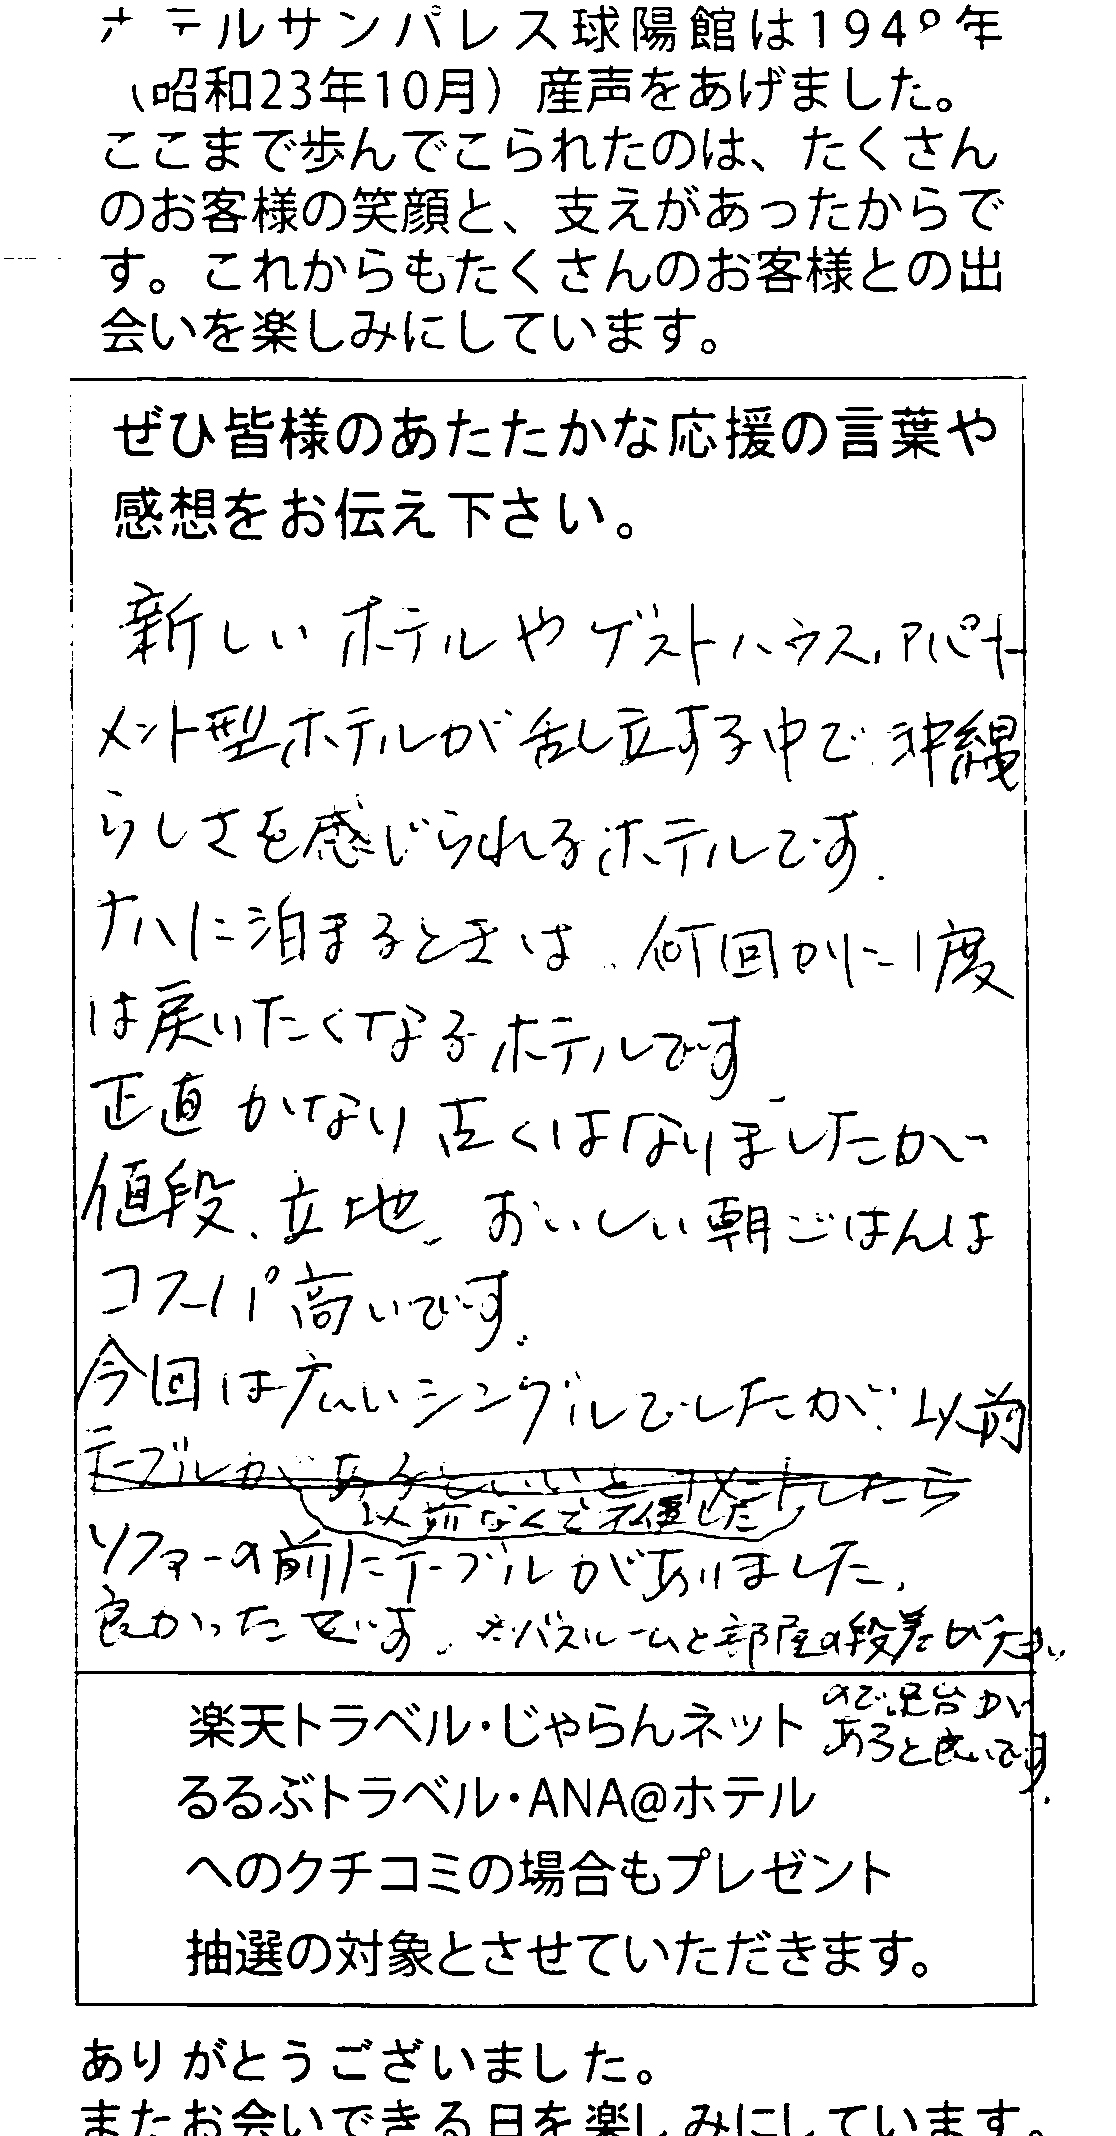 ホテルサンパレス球陽館は1948年
（昭和23年10月）産声をあげました。
ここまで歩んでこられたのは、たくさん
のお客様の笑顔と、支えがあったからで
す。これからもたくさんのお客様との出
会いを楽しみにしています。
ぜひ皆様のあたたかな応援の言葉や
感想をお伝え下さい。
新しいホテルやゲストハウス、アパート
メント型ホテルが乱立する中で沖縄
らしさを感じられるホテルです.
ナハに泊まるときは、何回かに1度
は戻いたくなるホテルです
正直かなり古くはなりましたが
値段、立地、おいしい朝ごはんは
コスパ高いです.
今回は広いシングルでしたが、以前
テーブルがあるといいとコメントしたら
以前なくて不便した
ソファーの前にテーブルがありました.
良かったです. ※バスルームと部屋の段差が大きい
ので足台が
あると良いです.
楽天トラベル・じゃらんネット
るるぶトラベル・ANA@ホテル
へのクチコミの場合もプレゼント
抽選の対象とさせていただきます。
ありがとうございました。
またお会いできる日を楽しみにしています。